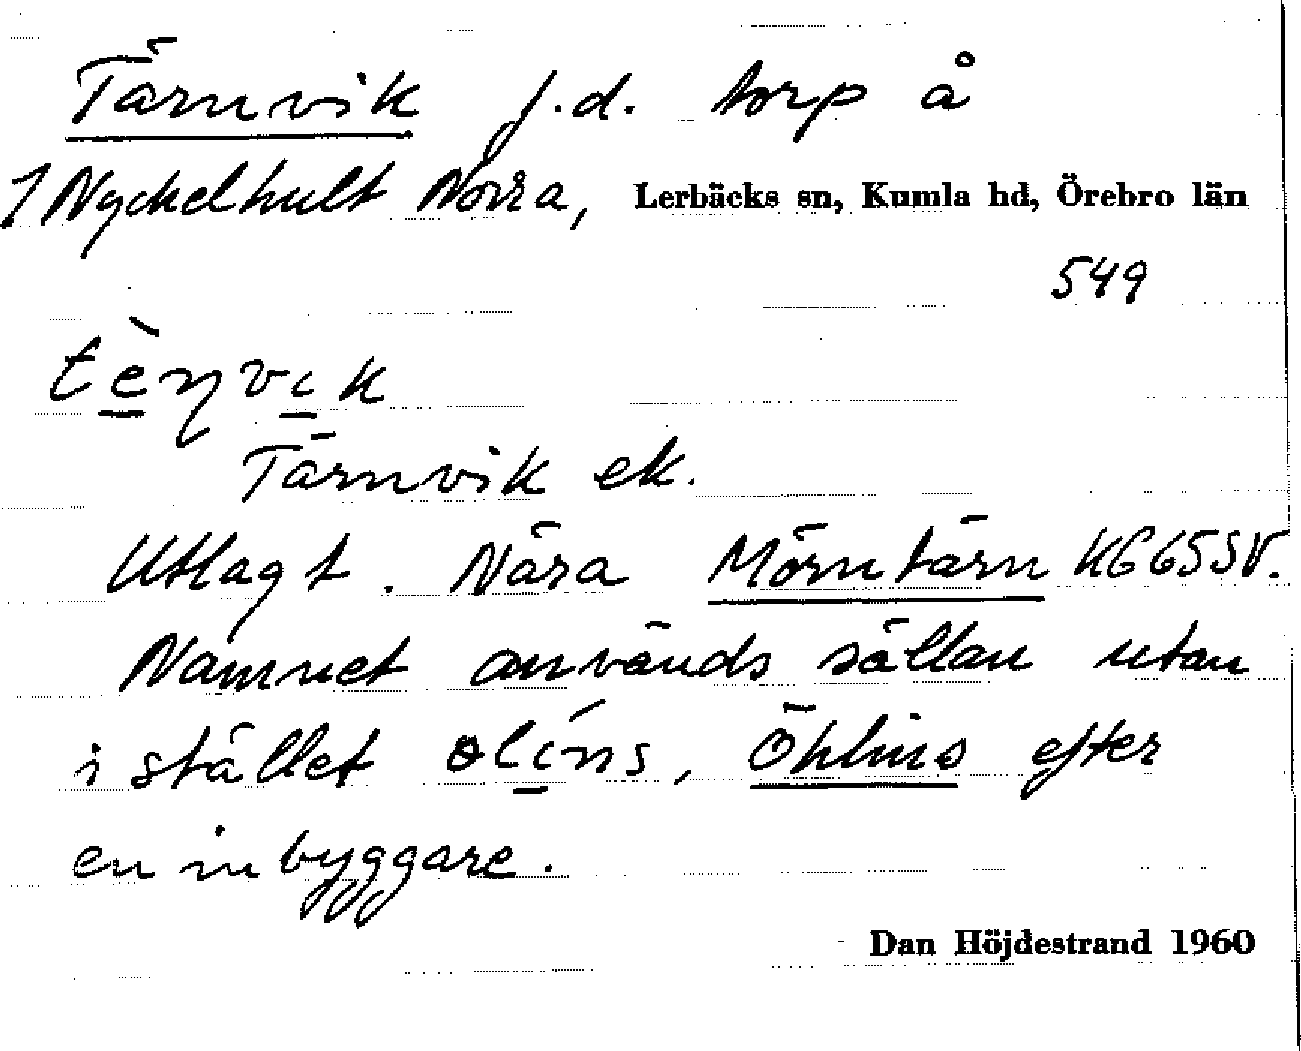 Tärnvik f.d. torp å
1 Nyckelhult Norra, Lerbäcks sn, Kumla hd, Örebro län
549
tèɳvik
Tärnvik ek.
Utlagt. Nära Mörntärn KG65SV.
Namnet används sällan utan
i stället ölíns, Öhlins efter
en inbyggare.
Dan Höjdestrand 1960